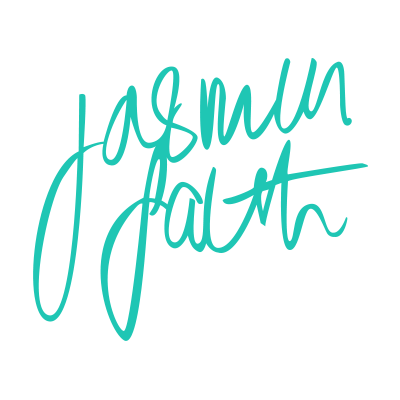 Jasmin
Faith